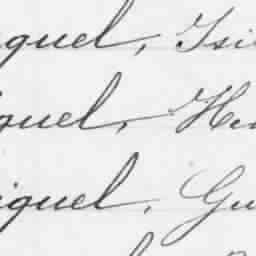 guel, Isi
guel, He
iguel, Gu